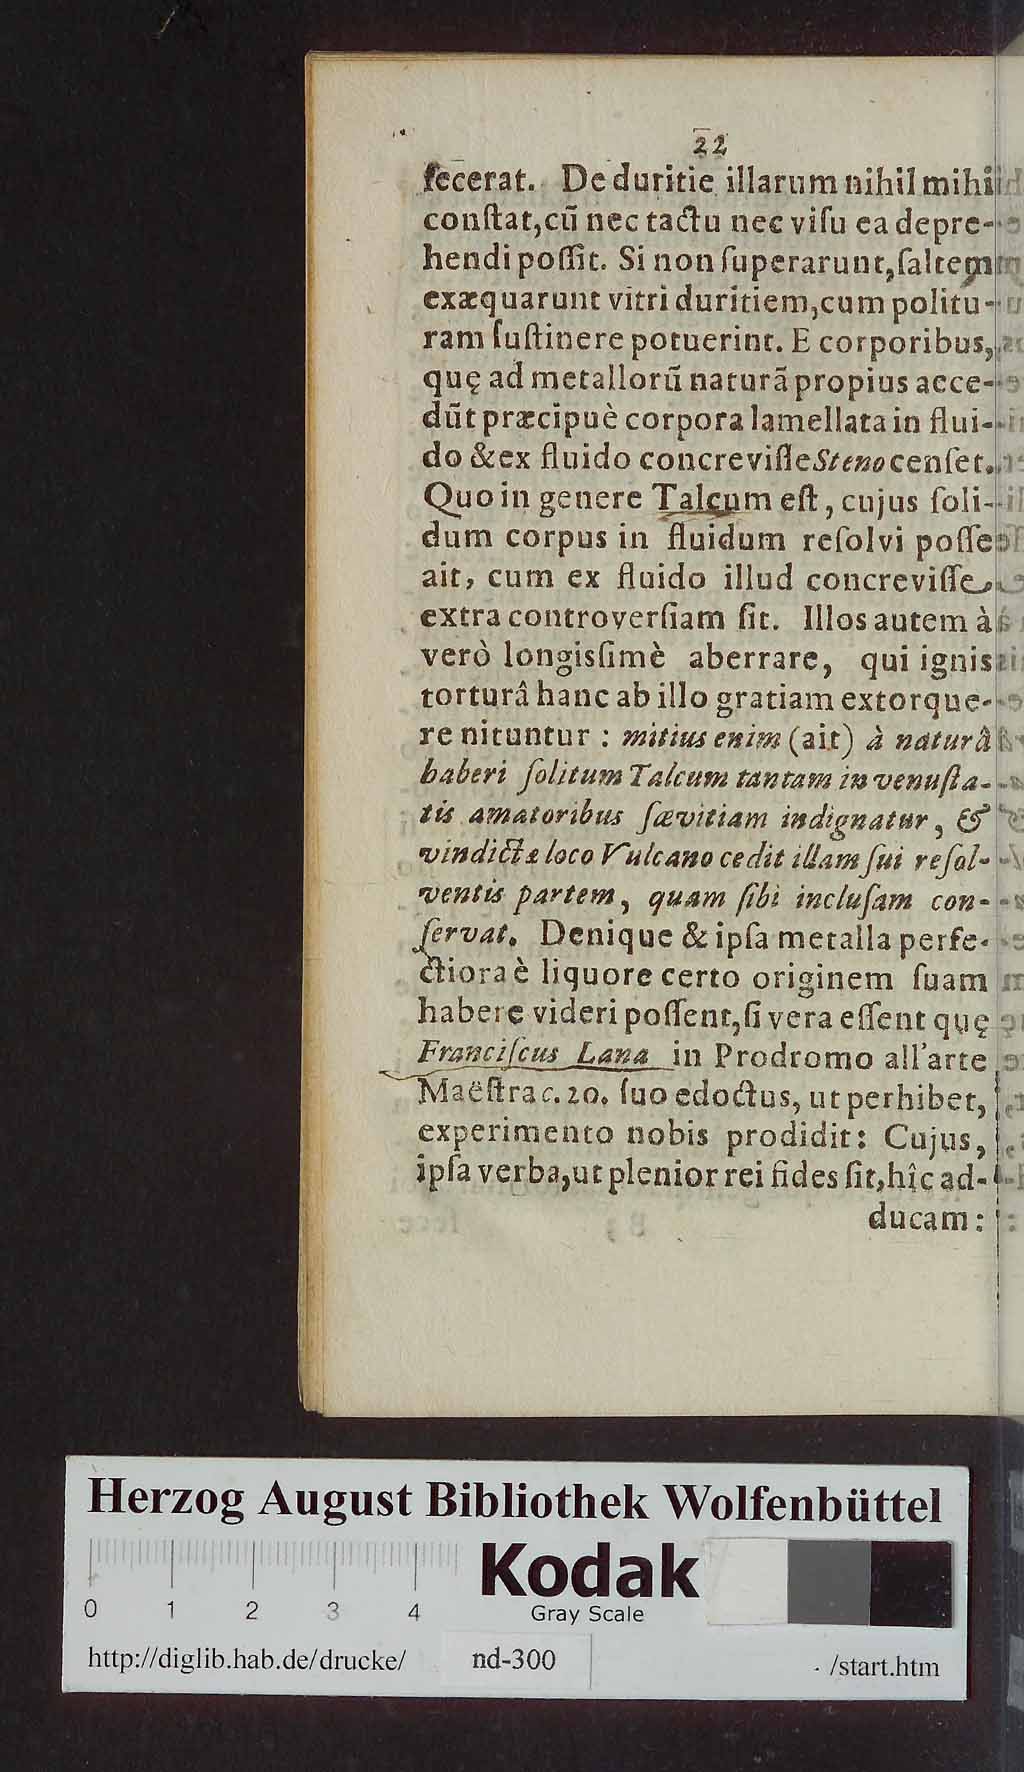 22
fecerat. De duritie illarum nihil mihi
conſtat,cũ nec tactu nec viſu ea depre-
hendi poſſit. Si non ſuperarunt,ſaltem
exæquarunt vitri duritiem,cum politu-
ram ſuſtinere potuerint. E corporibus,
quę ad metallorũ naturã propius acce-
dũt præcipuè corpora lamellata in flui-
do &ex fluido concreviſſe Steno cenſet.
Quo in genere Talcum eſt, cujus ſoli-
dum corpus in fluidum reſolvi poſſe
ait, cum ex fluido illud concreviſſe
extra controverſiam ſit. Illos autem à
verò longisſimè aberrare, qui ignis
torturâ hanc ab illo gratiam extorque-
re nituntur : mitius enim (ait) à naturâ
haberi ſolitum Talcum tantam in venuſta-
tis amatoribus ſævitiam indignatur, &
vindictæ loco Vulcano cedit illam ſui reſol-
ventis partem, quam ſibi incluſam con-
ſervat. Denique & ipſa metalla perfe-
ctiora è liquore certo originem ſuam
habere videri poſſent,ſi vera eſſent quę
Franciſcus Lana in Prodromo all'arte
Maëſtra c. 20. ſuo edoctus, ut perhibet,
experimento nobis prodidit: Cujus,
ipſa verba,ut plenior rei fides ſit,hîc ad-
ducam:
Herzog August Bibliothek Wolfenbüttel
Kodak
0 1 2 3 4 Gray Scale
http://diglib.hab.de/drucke/ nd-300 /start.htm